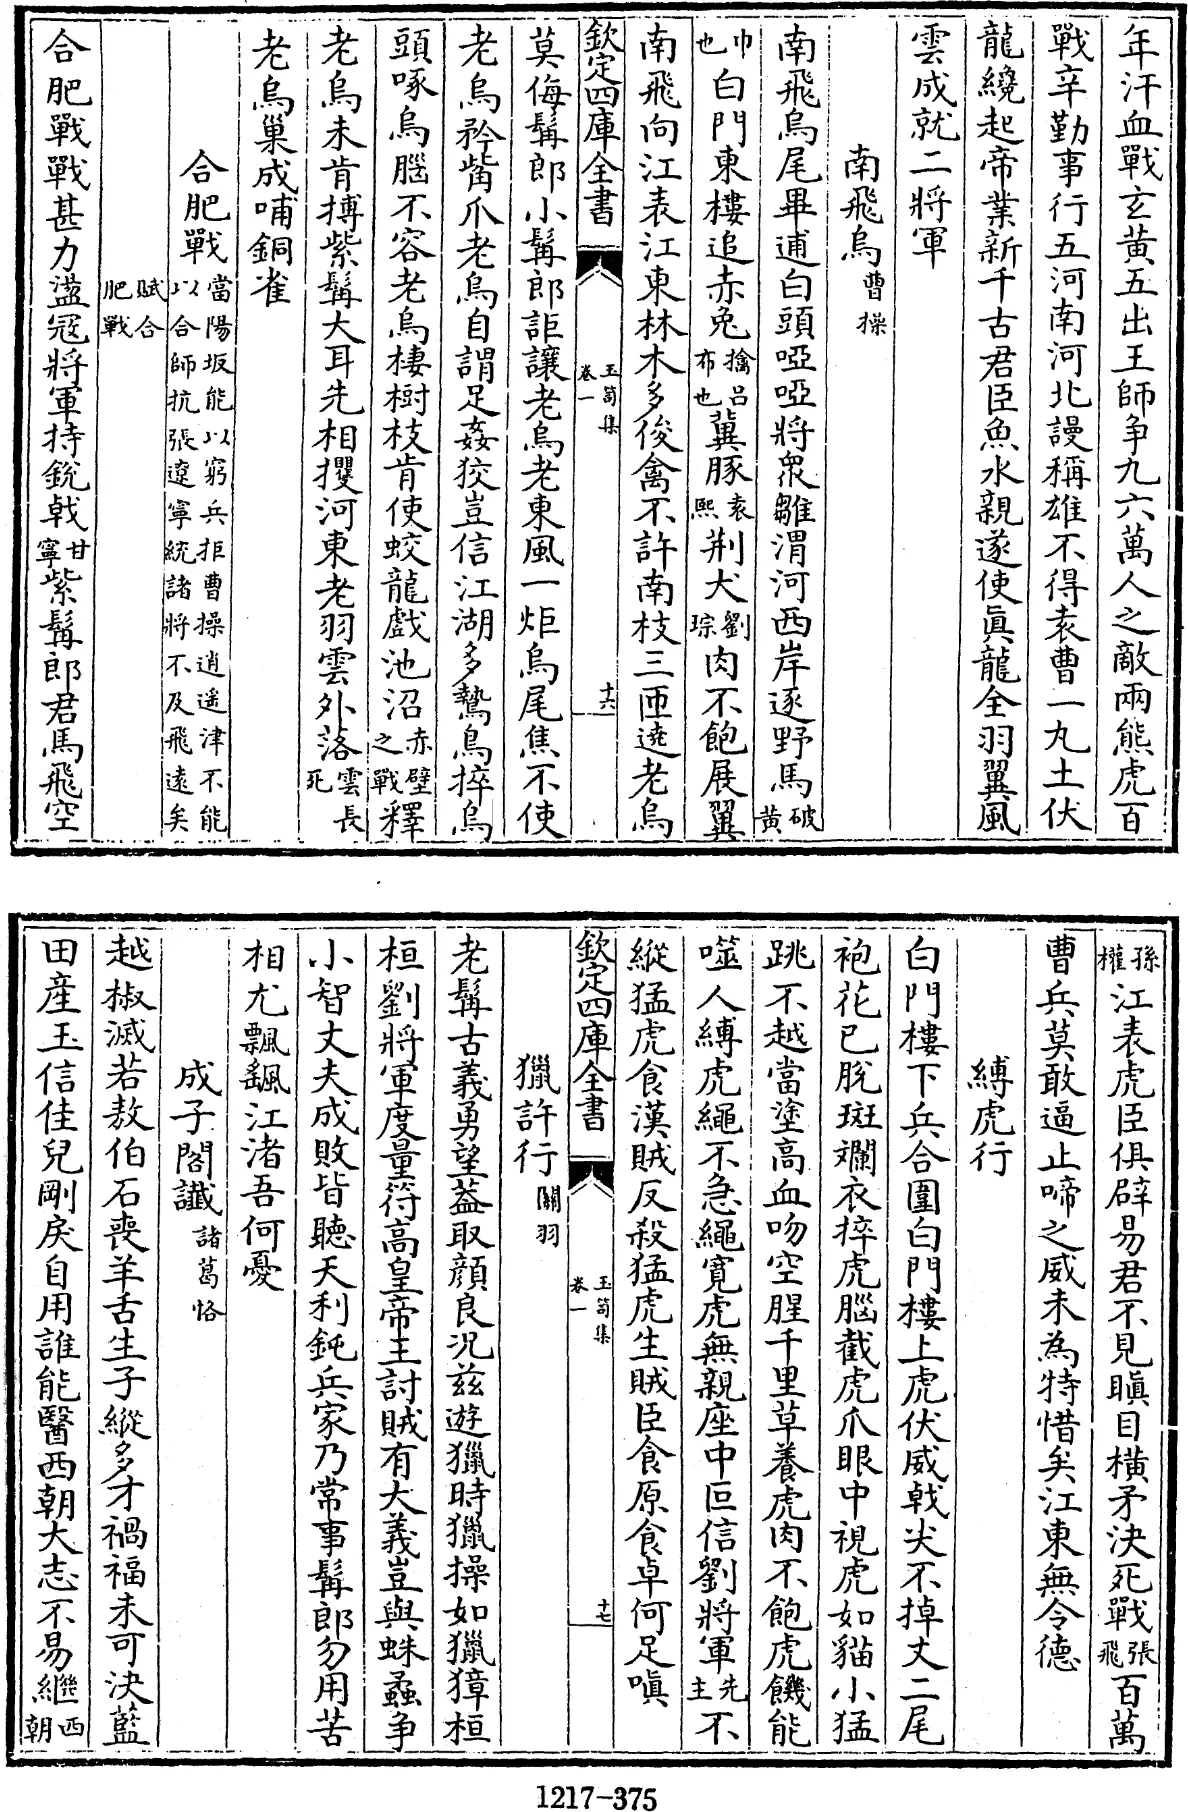 年汗血戰玄黃五出王師争九六萬人之敵兩熊虎百
戰辛勤事行五河南河北謾稱雄不得袁曹一丸土伏
龍繞起帝業新千古君臣魚水親遂使真龍全羽翼風
雲成就二將軍
南飛烏曹操
南飛烏尾畢逋白頭啞啞將衆雛渭河西岸逐野馬破黃
巾也白門東樓追赤兔擒吕布也冀豚袁熙荆犬劉琮肉不飽展翼
南飛向江表江東林木多俊禽不許南枝三匝遶老烏
欽定四庫全書 玉笥集卷一 十六
莫侮髯郎小髯郎詎讓老烏老東風一炬烏尾焦不使
老烏矜觜爪老烏自謂足姦狡豈信江湖多鷙鳥捽烏
頭啄烏腦不容老烏棲樹枝肯使蛟龍戲池沼赤壁之戰釋
老烏未肯搏紫髯大耳先相攫河東老羽雲外落雲長死
老烏巢成哺銅雀
合肥戰當陽坂能以窮兵拒曹操逍遥津不能以合師抗張遼寧統諸將不及飛遠矣
賦合肥戰
合肥戰戰甚力溢冦將軍持銳戟甘寧紫髯郎君馬飛空
孫權江表虎臣俱辟易君不見瞋目橫矛決死戰張飛百萬
曹兵莫敢逼止啼之威未為特惜矣江東無令德
縛虎行
白門樓下兵合圍白門樓上虎伏威戟尖不掉丈二尾
袍花已脫斑斕衣捽虎腦截虎爪眼中視虎如貓小猛
跳不越當塗高血吻空腥千里草養虎肉不飽虎饑能
噬人縛虎繩不急繩寬虎無親座中叵信劉將軍先主不
縱猛虎食漢賊反殺猛虎生賊臣食原食卓何足嗔
欽定四庫全書 玉笥集卷一 十七
獵許行關羽
老髯古義勇望葢取顏良况兹遊獵時獵操如獵獐桓
桓劉將軍度量符高皇帝王討賊有大義豈與蛛蝥争
小智丈夫成敗皆聽天利鈍兵家乃常事髯郎勿用苦
相尤飄颻江渚吾何憂
成子閤讖諸葛恪
越椒滅若敖伯石喪羊舌生子縱多才禍福未可決藍
田産玉信佳兒剛戾自用誰能醫西朝大志不易繼西朝
1217-375